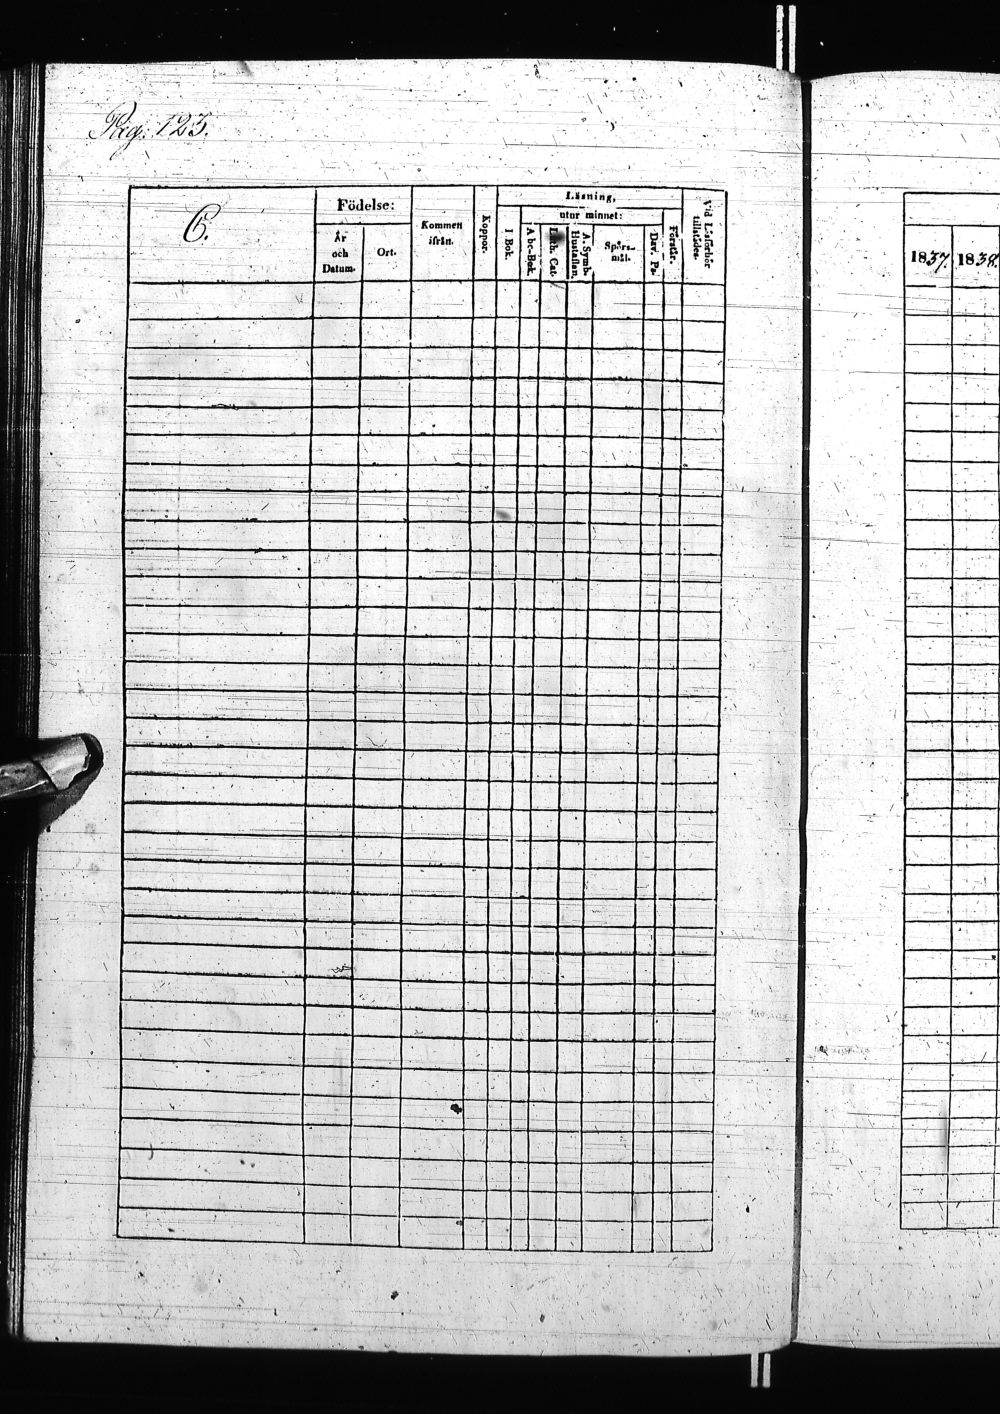 Pag: 123.
Födelse:
År
och
Datum.
Ort.
Kommen
ifrån.
Koppor.
Läsning,
utur minnet:
I Bok.
A bc-Bok.
Luth. Cat.
A. Symb.
Hustaflan.
Spörs-
mål.
Dav. Ps.
Förstår.
Vid Läsförhör
tillstädes.
1837. 1838.